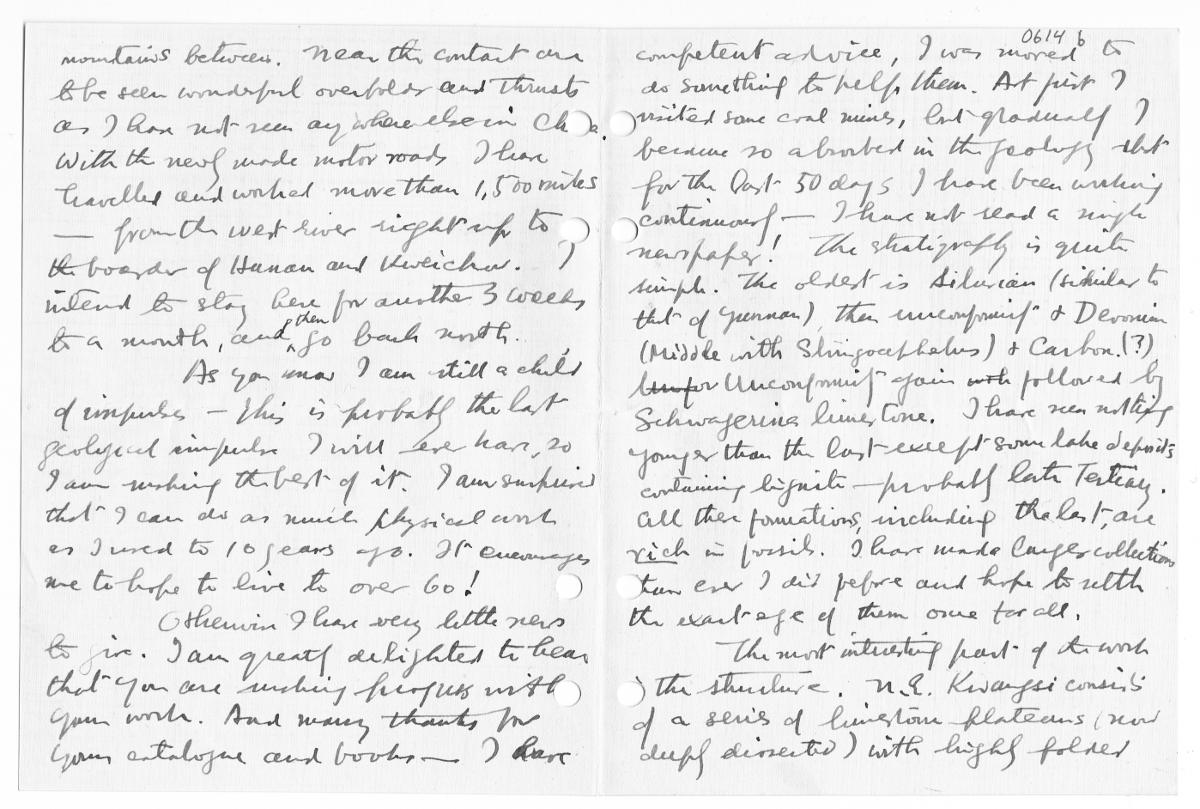 mountains between. Near the contact are
to be seen wonderful overfolds and thrusts
as I have not seen anywhere else in China.
With the newly made motor roads I have
travelled and worked more than 1,500 miles
— from the west river right up to
the boarder of Hunan and Kweichow. I
intend to stay here for another 3 weeks
to a month, and then go back north.
As you know I am still a child
of impulses — this is probably the last
geological impulse I will ever have, so
I am making the best of it. I am surprised
that I can do as much physical work
as I used to 10 years ago. It encourages
me to hope to live to over 60!
Otherwise I have very little news
to give. I am greatly delighted to hear
that you are making progress with
your work. And many thanks for
your catalogue and books — I have
0614 b
competent advice, I was moved to
do something to help them. At first I
visited some coal mines, but gradually I
became so absorbed in the geology that
for the last 50 days I have been working
continuously — I have not read a single
newspaper! The stratigrafly is quite
simple. The oldest is Silurian (similar to
that of Yunnan), then unconformity & Devonian
(Middle with Stringocephalus) & Carbon. (?)
Unconformity again with followed by
Schwagerina limestone. I have seen nothing
younger than the last except some lake deposits
containing lignite — probably late Tertiary.
All these formations, including the last, are
rich in fossils. I have made larger collections
than ever I did before and hope to settle
the exact age of them once for all.
The most interesting part of the work
is the structure. N.E. Kwangsi consists
of a series of limestone plateaus (now
deeply dissected) with highly folded